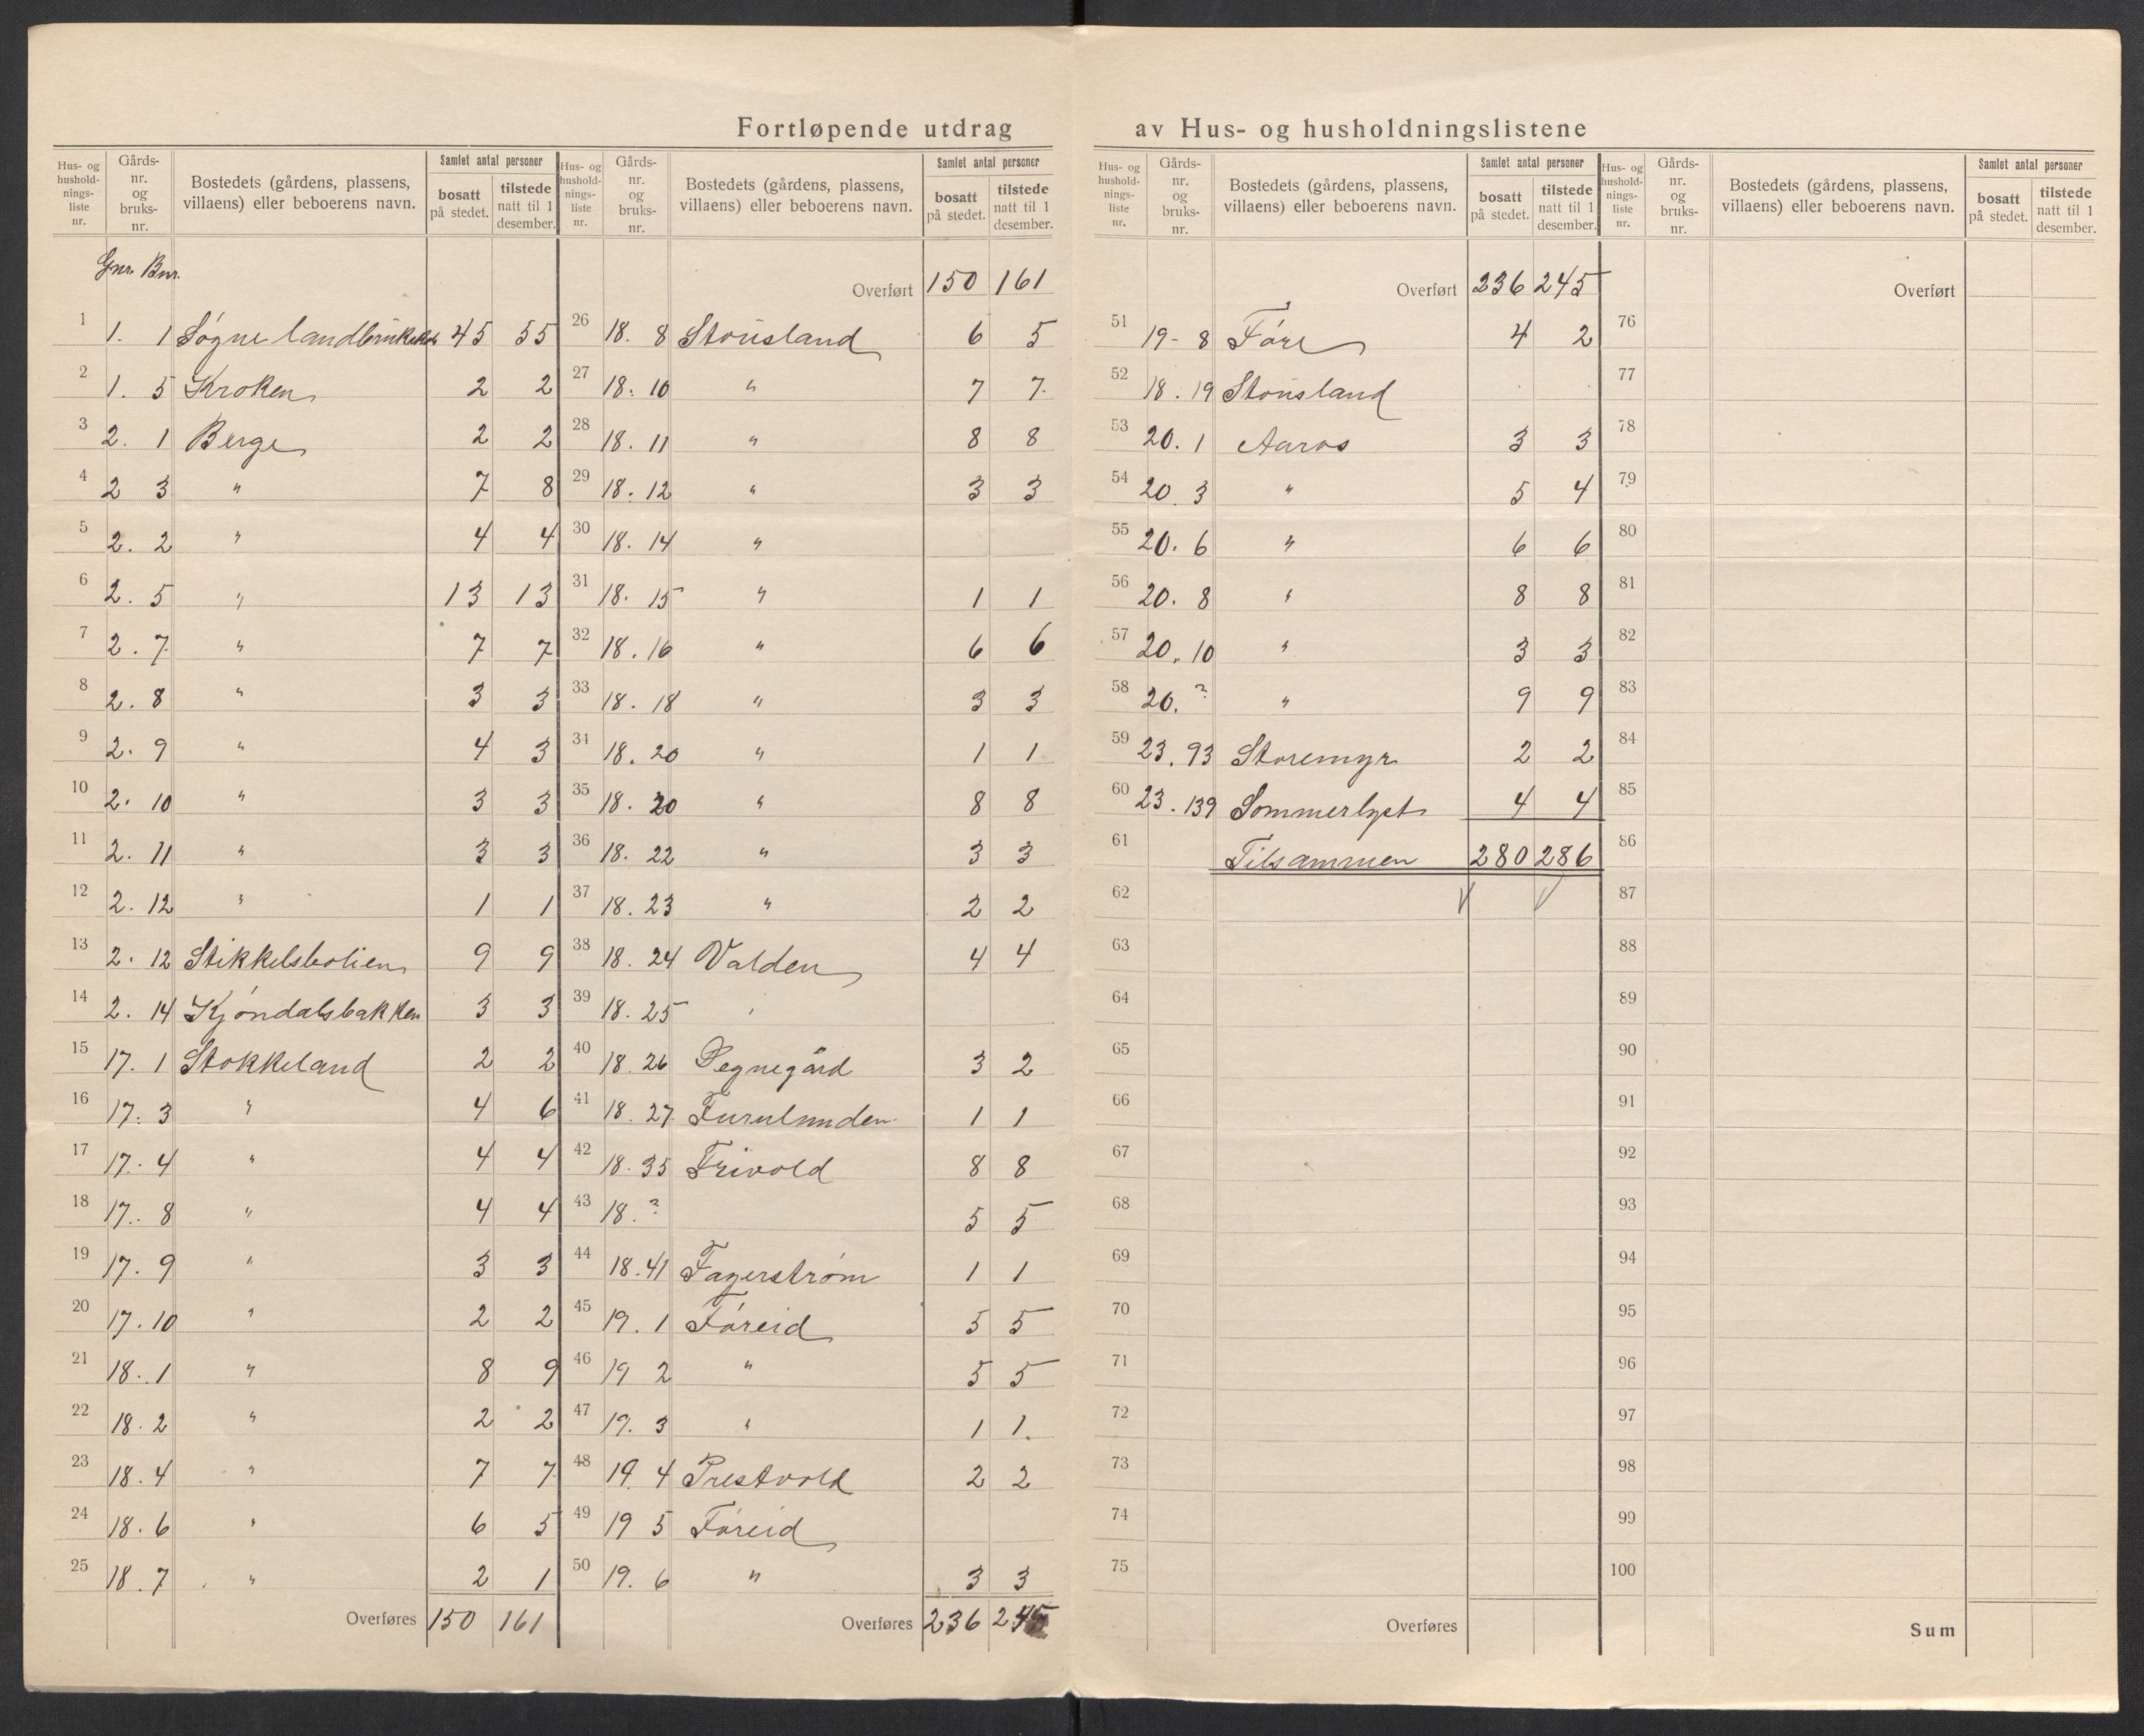 Fortløpende utdrag av Hus- og husholdningslistene
Hus- og husholdningsliste nr. | Gårds-nr. og bruks-nr. | Bostedets (gårdens, plassens, villaens) eller beboerens navn. | Samlet antal personer bosatt på stedet. | tilstede natt til 1 desember.
Gnr. Bnr.
1 1. 1 Søgne landbruksskole 45 55
2 1. 5 Kroken 2 2
3 2. 1 Berge 2 2
4 2 3 " 7 8
5 2. 2 " 4 4
6 2. 5 " 13 13
7 2. 7 " 7 7
8 2. 8 " 3 3
9 2. 9 " 4 3
10 2. 10 " 3 3
11 2. 11 " 3 3
12 2. 12 " 1 1
13 2. 12 9 9
14 2. 14 Kjøndalsbakken 3 3
15 17. 1 Stokkeland 2 2
16 17. 3 " 4 6
17 17. 4 " 4 4
18 17. 8 " 4 4
19 17. 9 " 3 3
20 17. 10 " 2 2
21 18. 1 " 8 9
22 18. 2 " 2 2
23 18. 4 " 7 7
24 18. 6 " 6 5
25 18. 7 " 2 1
Overføres 150 161
Hus- og husholdningsliste nr. | Gårds-nr. og bruks-nr. | Bostedets (gårdens, plassens, villaens) eller beboerens navn. | Samlet antal personer bosatt på stedet. | tilstede natt til 1 desember.
Overført 150 161
26 18. 8 Stousland 6 5
27 18. 10 " 7 7
28 18. 11 " 8 8
29 18. 12 " 3 3
30 18. 14 "
31 18. 15 " 1 1
32 18. 16 " 6 6
33 18. 18 " 3 3
34 18. 20 " 1 1
35 18. 20 " 8 8
36 18. 22 " 3 3
37 18. 23 " 2 2
38 18. 24 Valden 4 4
39 18. 25 "
40 18. 26 3 2
41 18. 27 Furulunden 1 1
42 18. 35 Trivold 8 8
43 18. ? 5 5
44 18. 41 Fagerstrøm 1 1
45 19. 1 Føreid 5 5
46 19 2 " 5 5
47 19. 3 " 1 1
48 19. 4 Prestvold 2 2
49 19 5 Føreid
50 19. 6 " 3 3
Overføres 236 245
Hus- og husholdningsliste nr. | Gårds-nr. og bruks-nr. | Bostedets (gårdens, plassens, villaens) eller beboerens navn. | Samlet antal personer bosatt på stedet. | tilstede natt til 1 desember.
Overført 236 245
51 19- 8 Føre 4 2
52 18. 19 Stousland
53 20. 1 Aaros 3 3
54 20. 3 " 5 4
55 20. 6 " 6 6
56 20. 8 " 8 8
57 20. 10 " 3 3
58 20. ? " 9 9
59 23. 93 Storemyr 2 2
60 23. 139 Sommerlyst 4 4
61 Tilsammen 280 286
62
63
64
65
66
67
68
69
70
71
72
73
74
75
Overføres
Hus- og husholdningsliste nr. | Gårds-nr. og bruks-nr. | Bostedets (gårdens, plassens, villaens) eller beboerens navn. | Samlet antal personer bosatt på stedet. | tilstede natt til 1 desember.
Overført
76
77
78
79
80
81
82
83
84
85
86
87
88
89
90
91
92
93
94
95
96
97
98
99
100
Sum